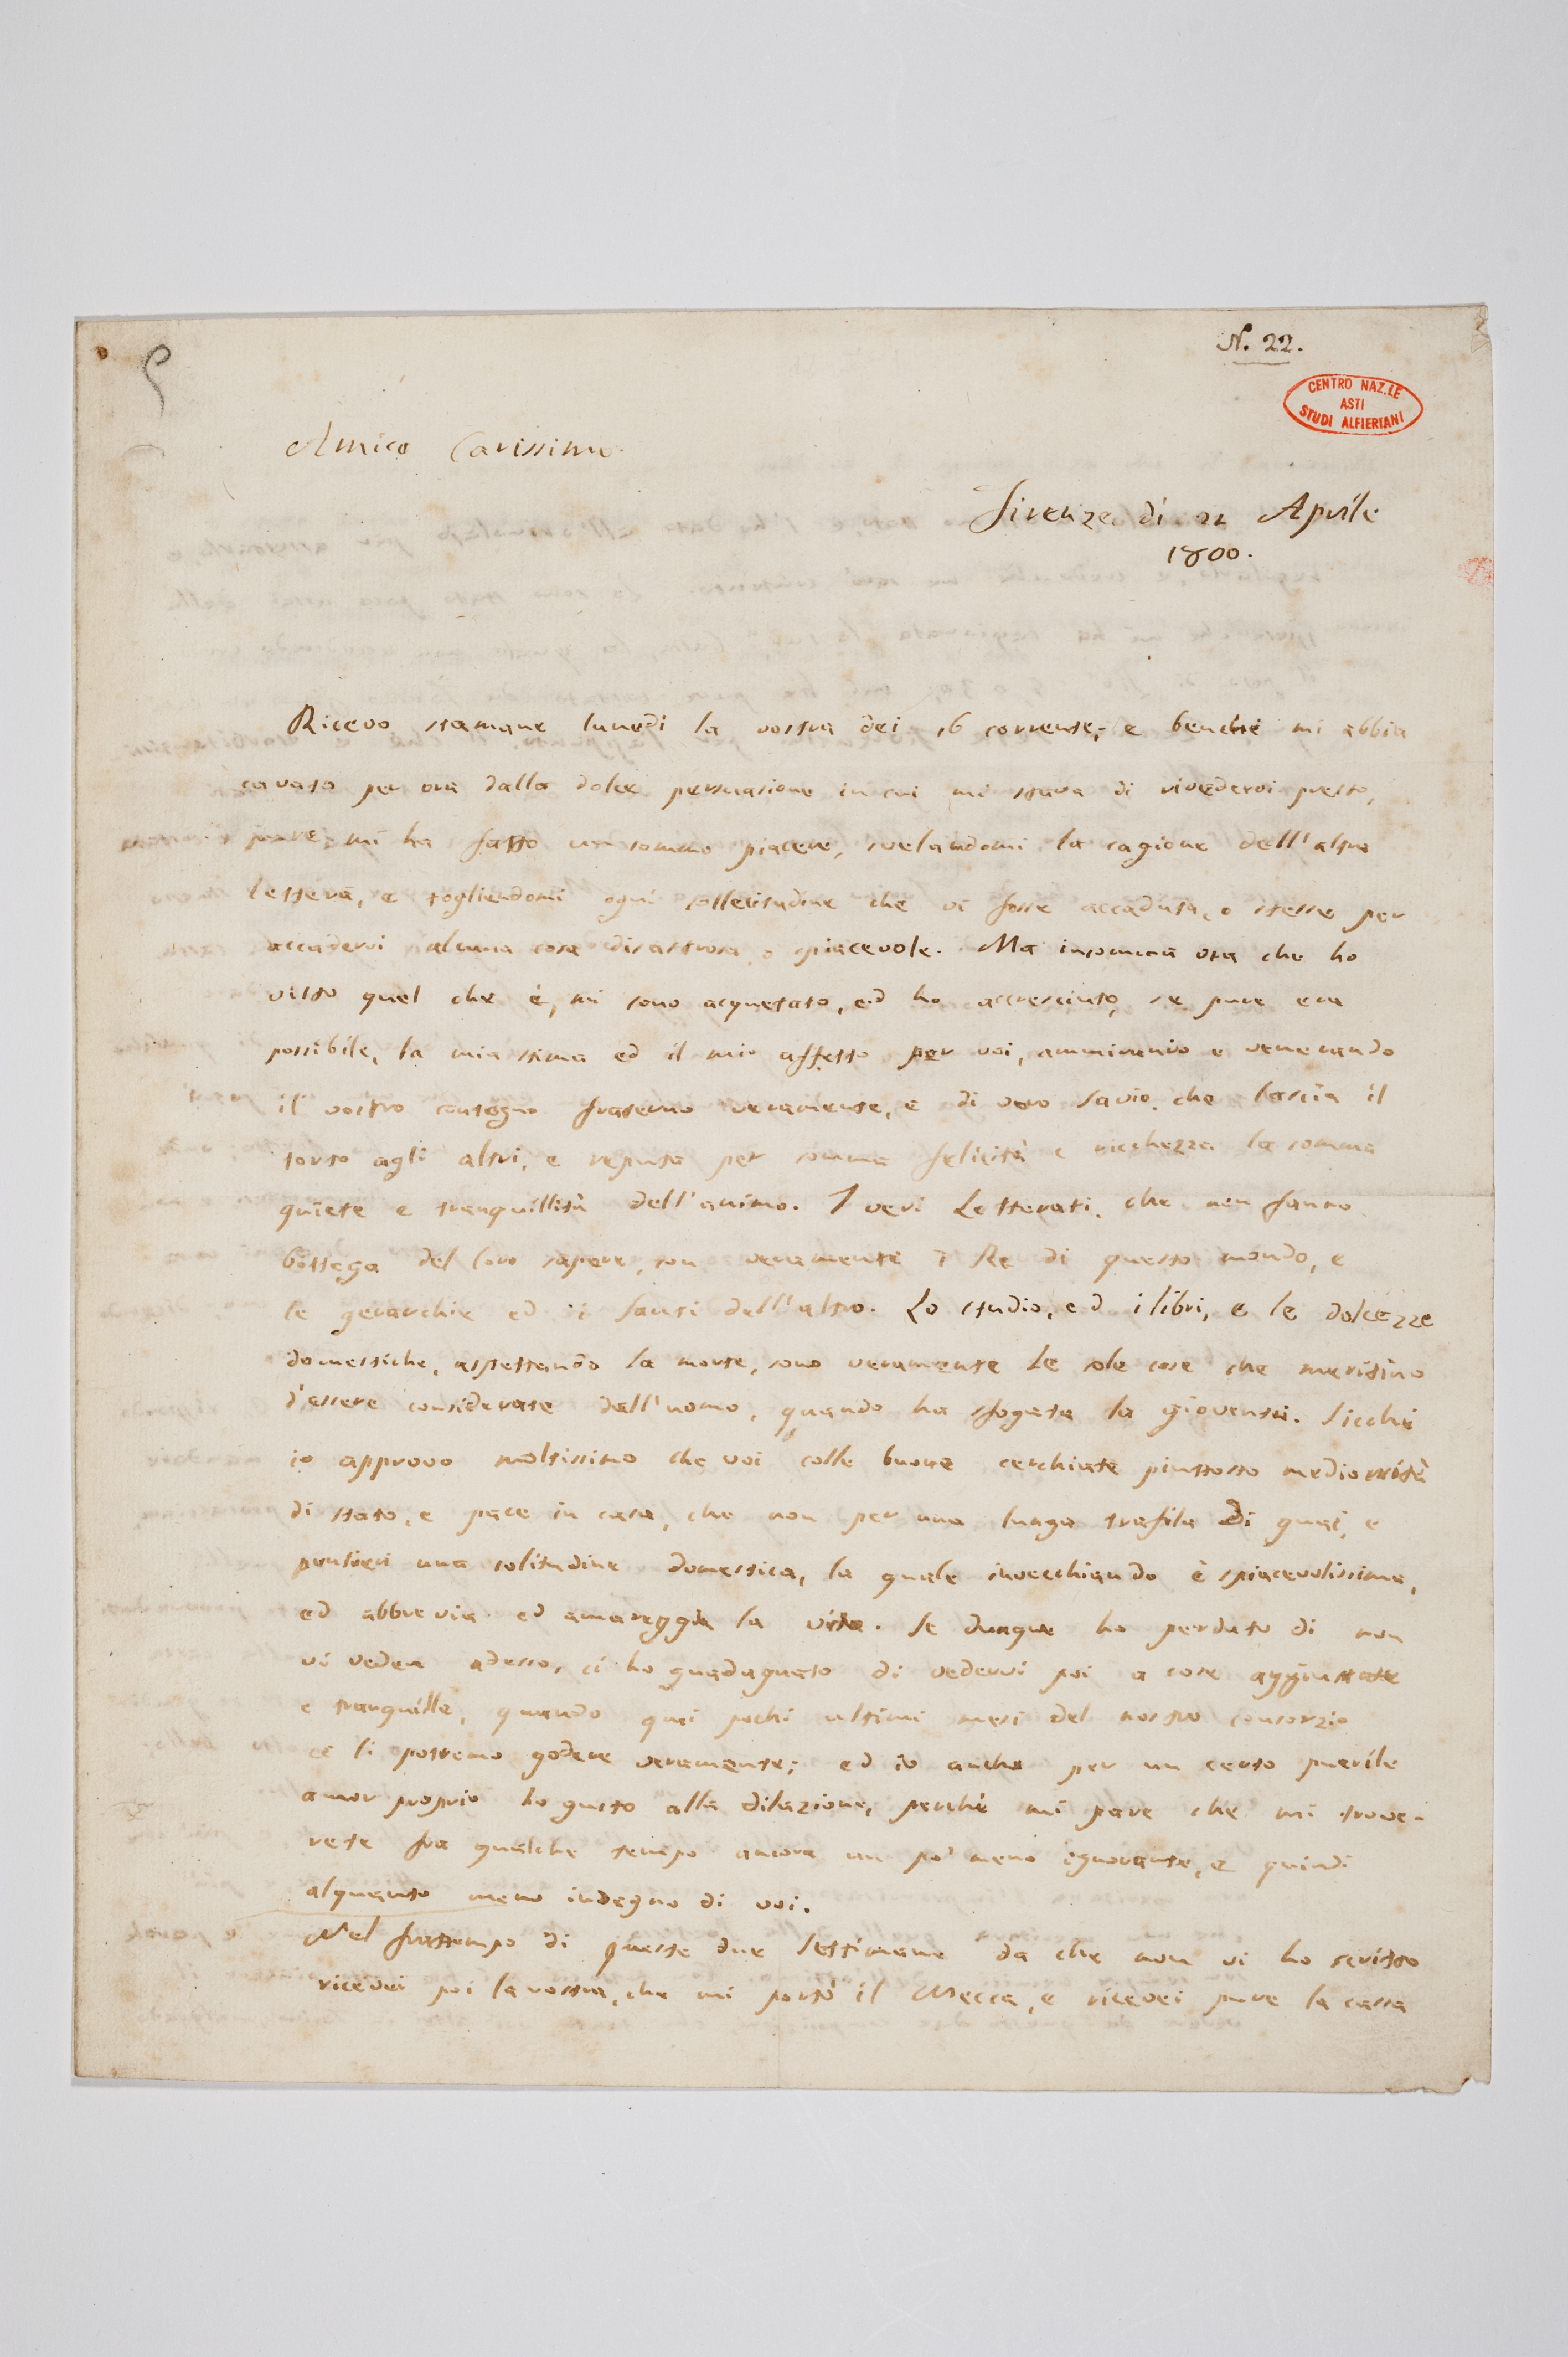 N. 22.
CENTRO NAZ.LE
ASTI
STUDI ALFIERIANI
Amico Carissimo.
Firenze dì 21 Aprile
1800.
Ricevo stamane lunedì la vostra dei 16 corrente; e benché mi abbia
cavato per ora dalla dolce persuasione in cui mi stava di rivedervi presto,
pure mi ha fatto un sommo piacere, svelandomi la cagione dell'altra
lettera, e togliendomi ogni sollecitudine che vi fosse accaduta, o stesse per
accadervi alcuna cosa disastrosa o spiacevole. Ma insomma ora che ho
visto quel che è, mi sono acquetato, ed ho accresciuto, se pure era
possibile, la mia stima ed il mio affetto per voi, ammirando e venerando
il vostro contegno fraterno veramente, e di vero savio, che lascia il
torto agli altri, e reputa per somma felicità e ricchezza la somma
quiete e tranquillità dell'animo. I veri Letterati, che non fanno
bottega del loro sapere, son veramente i Re di questo mondo, e
le gerarchie ed i santi dell'altro. Lo studio, ed i libri, e le dolcezze
domestiche, aspettando la morte, sono veramente le sole cose che meritino
d'essere considerate dall'uomo, quando ha sfogata la gioventù. Sicché
io approvo moltissimo che voi colle buone cerchiate piuttosto mediocrità
di stato, e pace in casa, che non per una lunga trafila di guai, e
pensieri una solitudine domestica, la quale invecchiando è spiacevolissima,
ed abbrevia ed amareggia la vita. Se dunque ho perduto di non
vi veder adesso, ci ho guadagnato di vedervi poi a cose aggiustate
e tranquille, quando quei pochi ultimi mesi del nostro consorzio
ce li potremo godere veramente; ed io anche per un certo puerile
amor proprio ho gusto alla dilazione, perché mi pare che mi trove-
rete fra qualche tempo ancora un po' meno ignorante, e quindi
alquanto meno indegno di voi.
Nel frattempo di queste due settimane da che non vi ho scritto
ricevei poi la vostra, che mi portò il Mecca, e ricevei pure la cassa